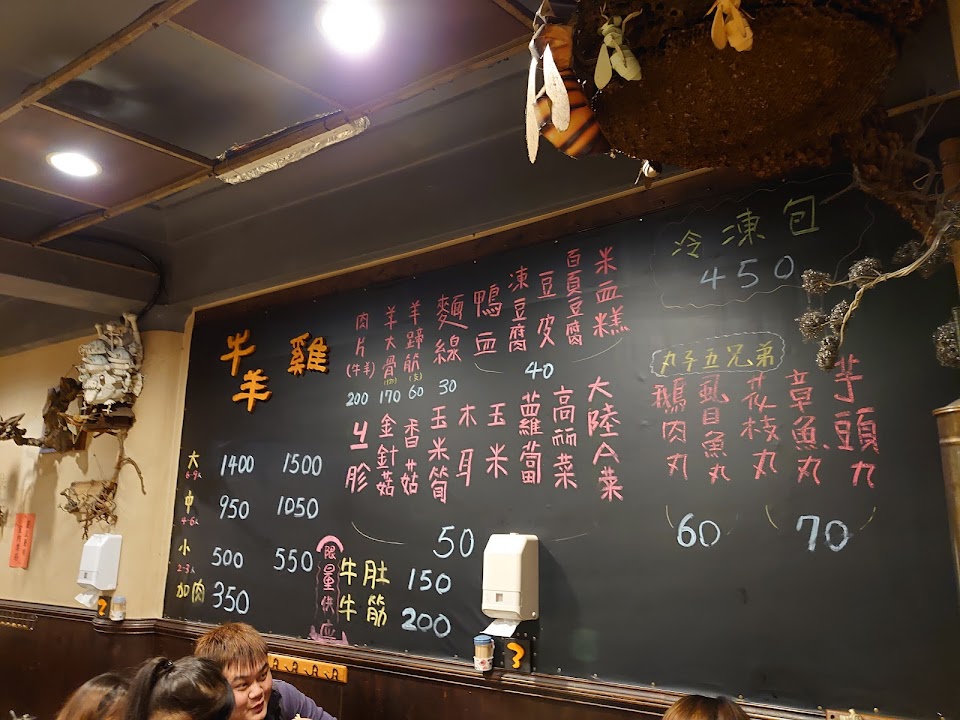 牛羊 雞
大 6-9人 1400 1500
中 4-6人 950 1050
小 2-3人 500 550
加肉 350
肉片(牛羊) 200
羊大骨 170
羊蹄筋(支) 60
麵線 30
鴨血
凍豆腐
豆皮
百頁豆腐
米血糕
40
金針菇
香菇
玉米筍
木耳
玉米
蘿蔔
高麗菜
大陸A菜
50
限量供应
牛肚 150
牛筋 200
冷凍包
450
丸子五兄弟
鵝肉丸
虱目魚丸
60
花枝丸
章魚丸
芋頭丸
70
2
3